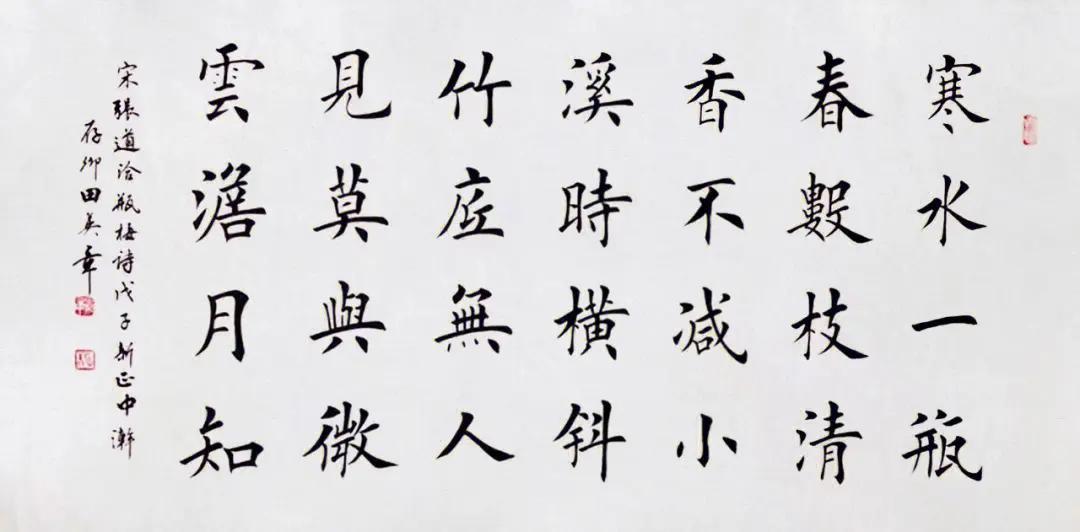 寒水一瓶
春數枝清
香不減小
溪時橫斜
竹底無人
見莫與微
雲澹月知
宋張道洽瓶梅詩戊子新正中澣
存卿田英章